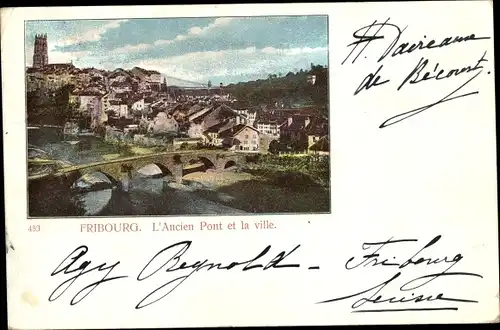 A Daireaux
de Bécourt
453 FRIBOURG. L'Ancien Pont et la ville.
Agy Reynold - Fribourg
Suisse